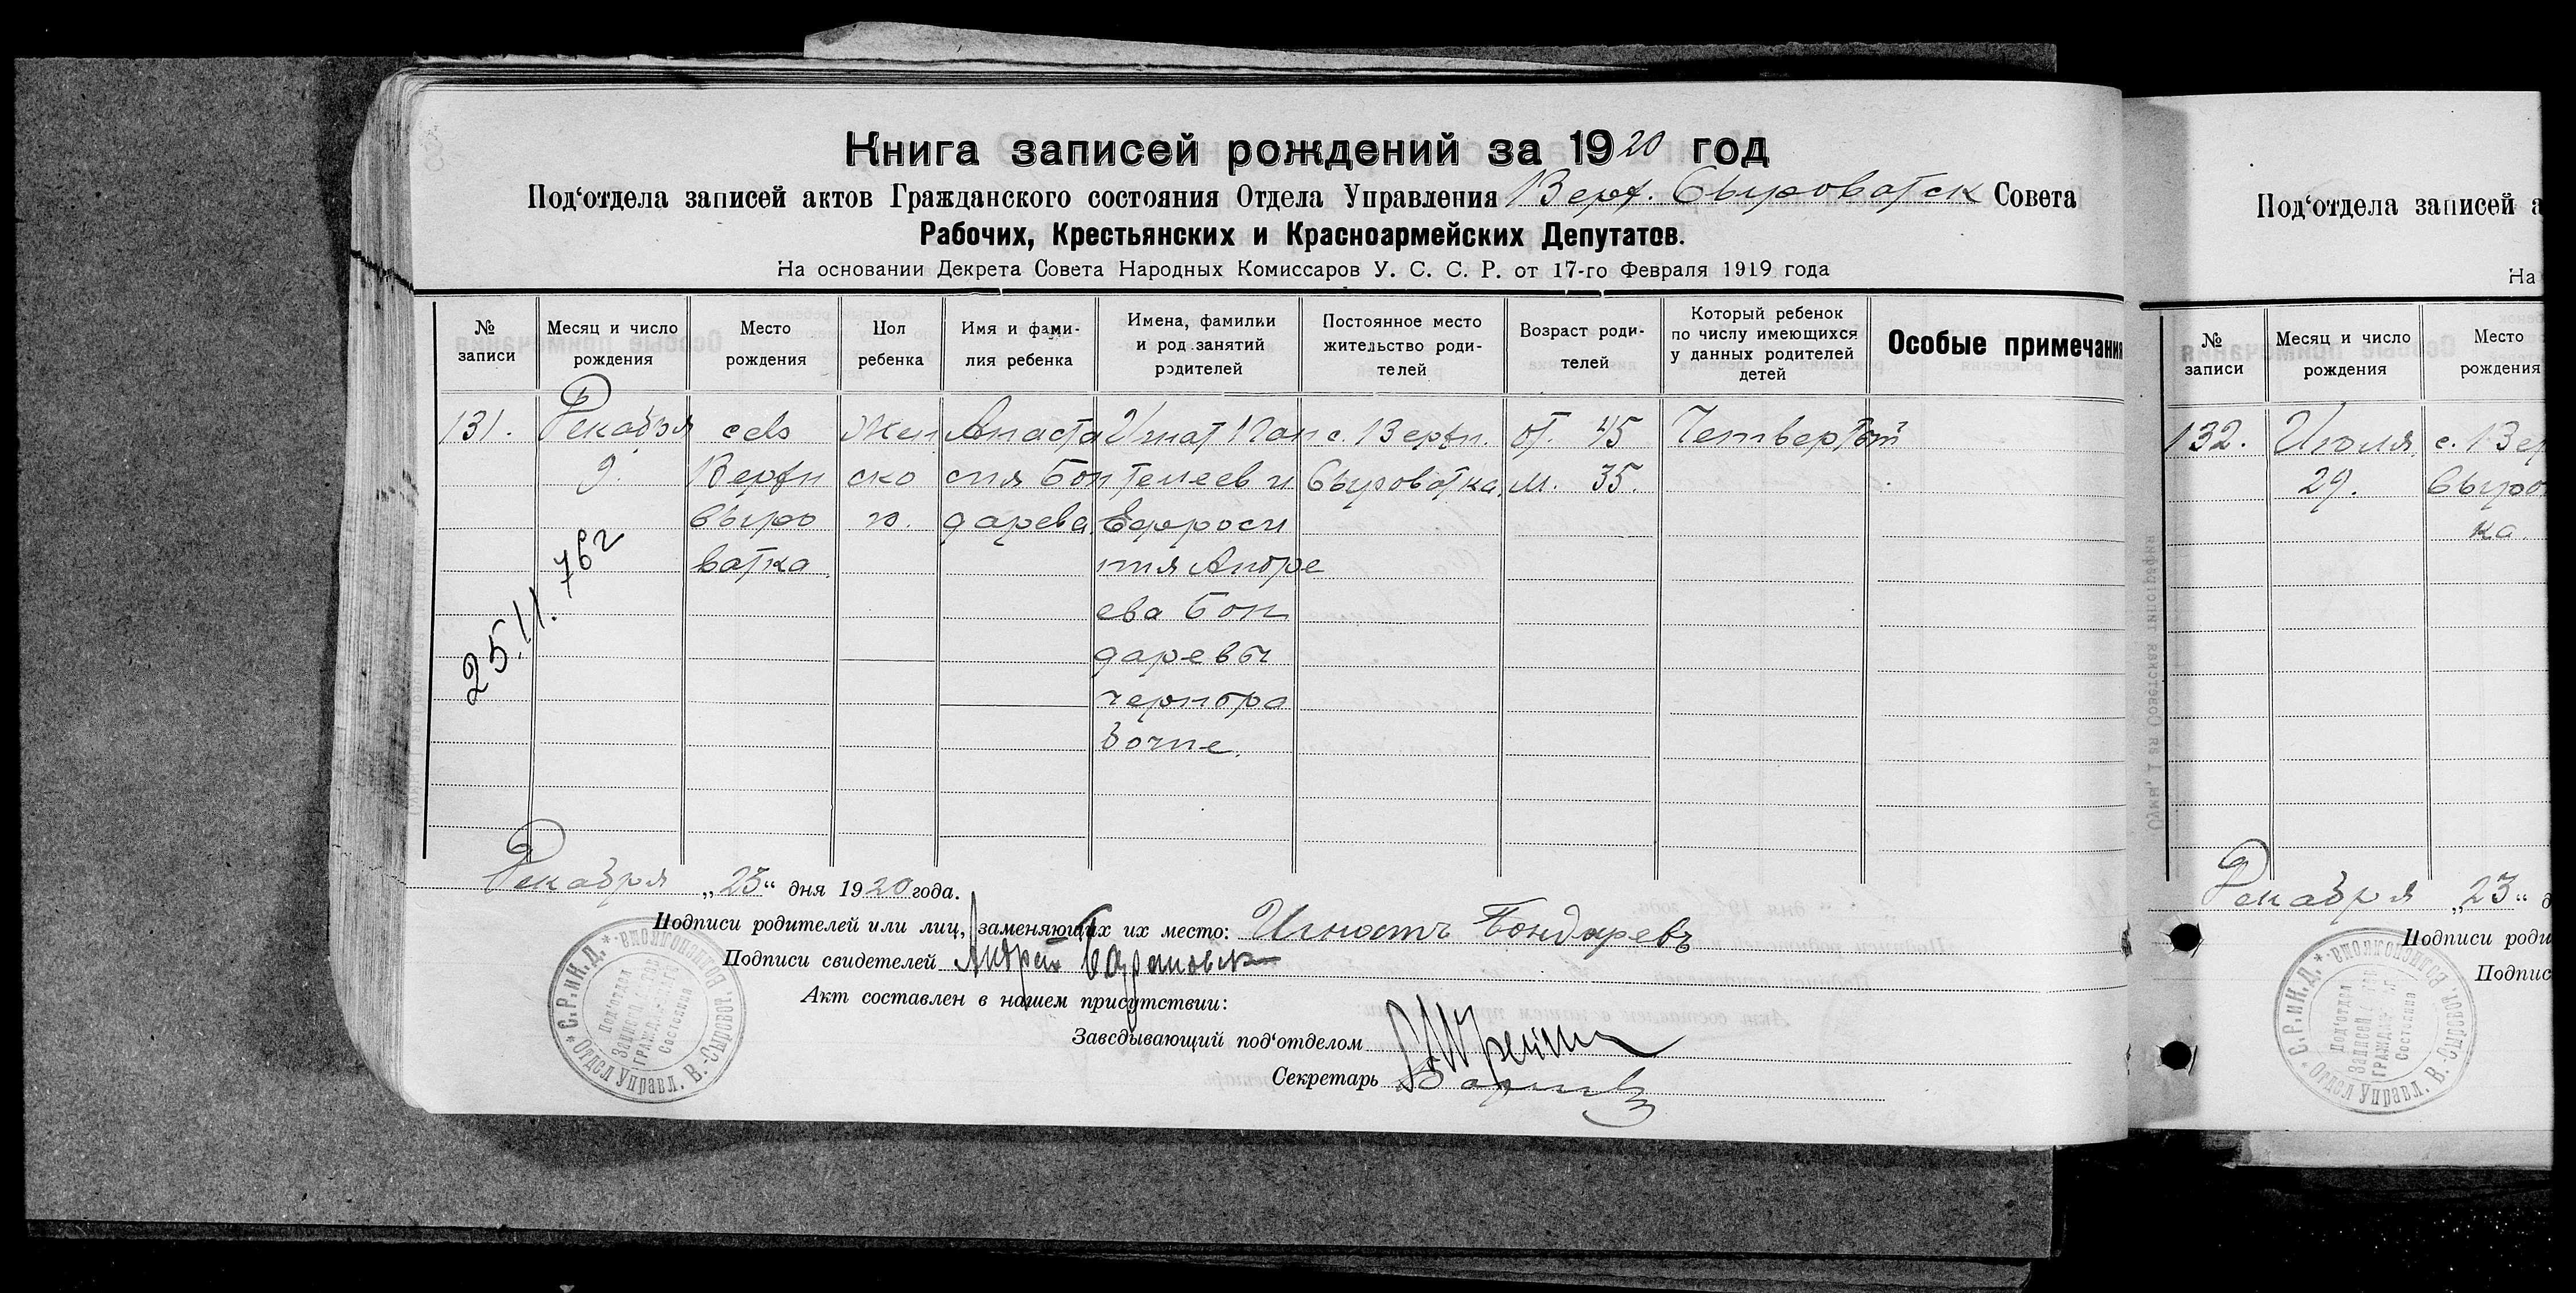 Книга записей рождений за 1920 год
Под‘отдела записей актов Гражданского состояния Отдела Управления Верх. Сыроватск Совета
Рабочих, Крестьянских и Красноармейских Депутатов.
На основании Декрета Совета Народных Комиссаров У. С. С. Р. от 17-го Февраля 1919 года
№ записи
Месяц и число рождения
Место рождения
Пол ребенка
Имя и фами-
лия ребенка
Имена, фамилии
и род занятий
родителей
Постоянное место
жительство роди-
телей
Возраст роди-
телей
Который ребенок
по числу имеющихся
у данных родителей
детей
Особые примечания
131.
Декабря
9.
село
Верхн
Сыро
ватка.
Жен
ско
го.
Анаста
сия Бон
дарева.
Игнат Пан
телеев и
Ефроси
ния Андре
ева Бон
даревы
чернора
бочие.
с. Верхн.
Сыроватка.
от. 45
м. 35.
Четвертый
25.11.76г
Декабря „23“ дня 1920 года.
Подписи родителей или лиц, заменяющих их место: Игнатъ Бондаревъ
Подписи свидетелей Андрей
Акт составлен в нашем присутствии:
Заведывающий под‘отделом
Секретарь
* С.Р. и К.Д. * Отдел Управл. В.-Сыроват. Волисполкома.
Под‘отдел
Записей Актов
Граждан.
Состояния
Под‘отдела записей а
На
№ записи
Месяц и число рождения
Место рождения
132.
Июля
29.
с. Вер
Сыро
ка.
Декабря „23“ д
Подписи роди
Подпис
* С.Р. и К.Д. * Отдел Управл. В.-Сыроват. Волисполкома.
Под‘отдел
Записей Актов
Граждан.
Состояния
Сумы, 1-ая Советская типография